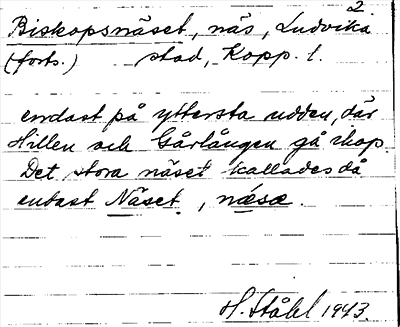 2.
Biskopsnäset, näs, Ludvika
(forts.) stad, Kopp. l.
endast på yttersta udden, där
Hillen och Gårlången gå ihop.
Det stora näset kallades då
endast Näset, næsæ.
H. Ståhl 1943.